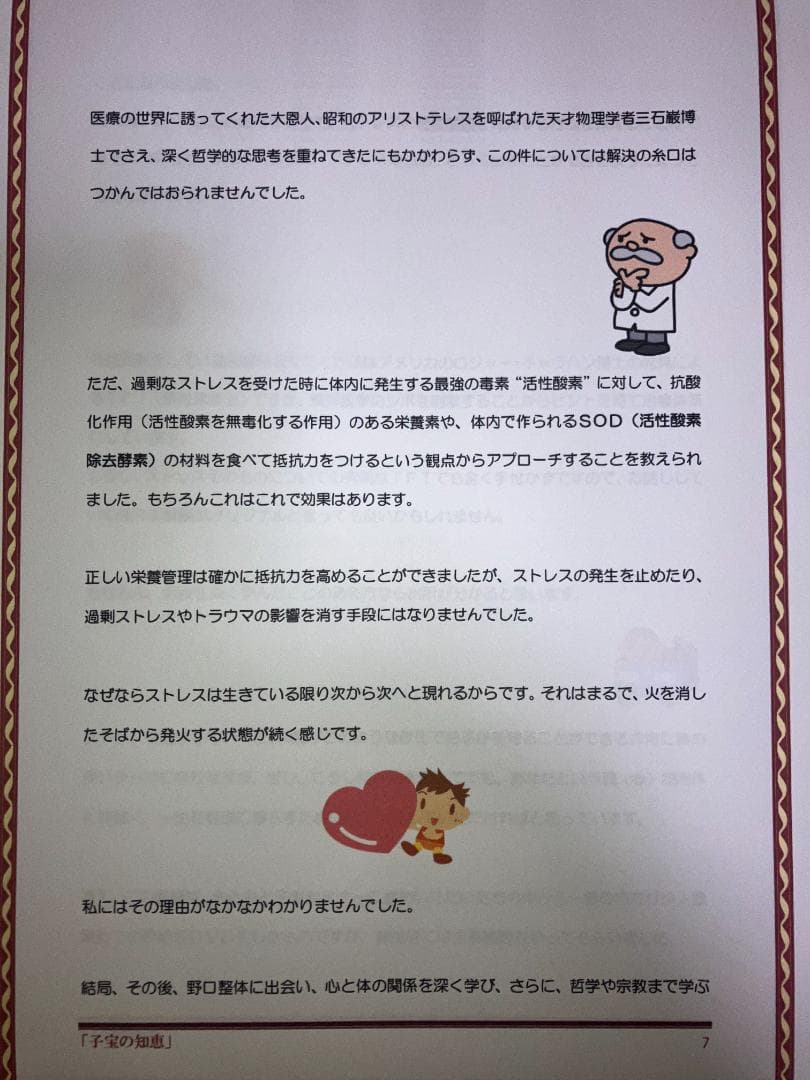 医療の世界に誘ってくれた大恩人、昭和のアリストテレスを呼ばれた天才物理学者三石巌博
士でさえ、深く哲学的な思考を重ねてきたにもかかわらず、この件については解決の糸口は
つかんではおられませんでした。
ただ、過剰なストレスを受けた時に体内に発生する最強の毒素“活性酸素”に対して、抗酸
化作用（活性酸素を無毒化する作用）のある栄養素や、体内で作られるSOD（活性酸素
除去酵素）の材料を食べて抵抗力をつけるという観点からアプローチすることを教えられ
ました。もちろんこれはこれで効果はあります。
正しい栄養管理は確かに抵抗力を高めることができましたが、ストレスの発生を止めたり、
過剰ストレスやトラウマの影響を消す手段にはなりませんでした。
なぜならストレスは生きている限り次から次へと現れるからです。それはまるで、火を消し
たそばから発火する状態が続く感じです。
私にはその理由がなかなかわかりませんでした。
結局、その後、野口整体に出会い、心と体の関係を深く学び、さらに、哲学や宗教まで学ぶ
「子宝の知恵」 7